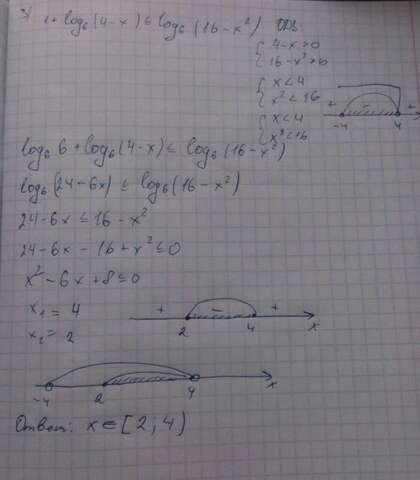 3) 1 + log₆(4-x) ≤ log₆(16-x²) ОДЗ
{ 4-x>0
16-x²>0
{ x<4
x²<16
{ x<4
x²<16
+ - +
-4 4
log₆6 + log₆(4-x) ≤ log₆(16-x²)
log₆(24-6x) ≤ log₆(16-x²)
24-6x ≤ 16-x²
24-6x-16+x² ≤ 0
x²-6x+8 ≤ 0
x₁ = 4
x₂ = 2
+ - +
2 4 x
-4 2 4 x
Ответ: x ∈ [2; 4)